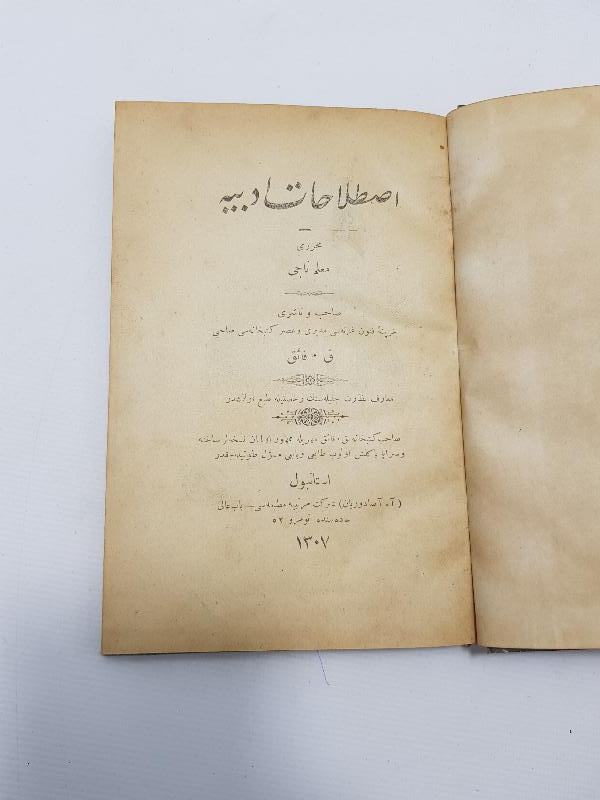 اصطلاحات ادبیه
محرری
معلم ناجی
صاحب و ناشری
خزینهٔ فنون غزته‌سی مدیری و عصر کتبخانه‌سی صاحبی
ق • فائق
معارف نظارت جلیله‌سنك رخصتیله طبع اولنمشدر
صاحب کتبخانه ق • فائق مهریله ممهور اولمایان نسخه‌لر ساخته
استانبول
( آ . آصادوریان ) شرکت مرتبیه مطبعه‌سی — باب عالی
جاده‌سنده نومرو ٥٢
١٣٠٧